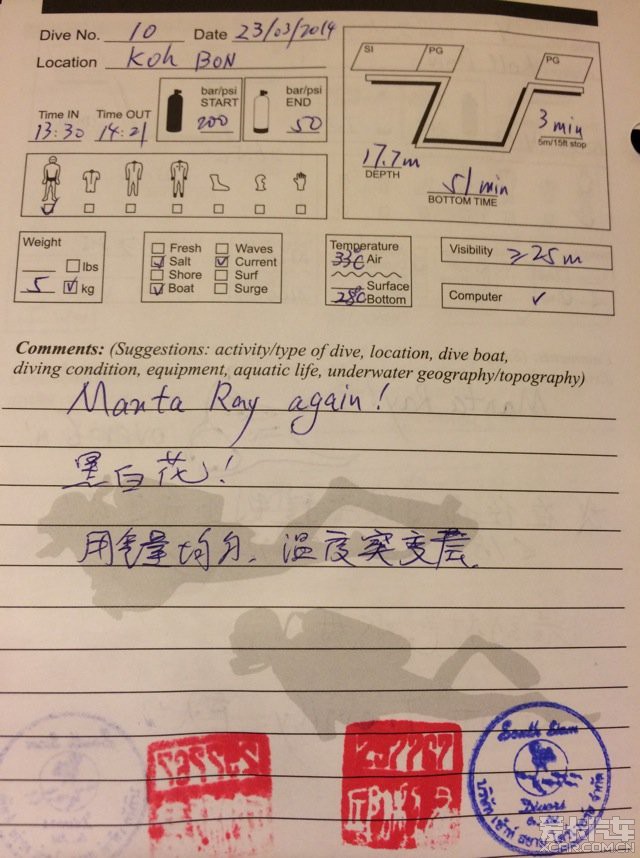 Dive No. 10 Date 23/03/2014
Location Koh BON
SI PG PG
bar/psi START 200
bar/psi END 50
Time IN Time OUT
13:30 14:21
3 min
5m/15ft stop
17.7m
DEPTH
51 min
BOTTOM TIME
Weight
lbs
5 kg
Fresh Waves
Salt Current
Shore Surf
Boat Surge
Temperature
33℃ Air
Surface
28℃ Bottom
Visibility ≥25m
Computer ✓
Comments: (Suggestions: activity/type of dive, location, dive boat,
diving condition, equipment, aquatic life, underwater geography/topography)
Manta Ray again!
黑白花!
用气量均匀. 温度突变层.
South Siam
Divers
爱卡汽车
XCAR.COM.CN